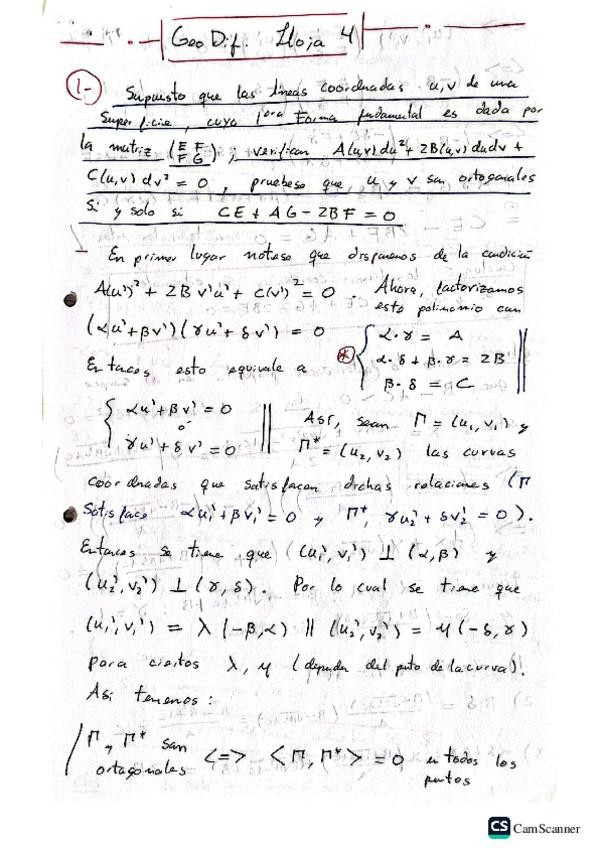 Geo Dif. Hoja 4
1- Supuesto que las líneas coordnadas u,v de una
superficie, cuya 1era Forma fundamental es dada por
la matriz (E F / F G), verifican A(u,v)du² + 2B(u,v)dudv +
C(u,v)dv² = 0, pruebese que, u y v son ortogonales
si y solo si CE + AG - 2BF = 0
En primer lugar notese que disponemos de la condición
A(u')² + 2B v'u' + C(v')² = 0. Ahora, factorizamos
esto polinomio con
(αu'+βv')(γu'+δv') = 0
* { α·γ = A
α·δ + β·γ = 2B
β·δ = C
Entonces esto equivale a
{ αu'+βv' = 0
o
γu'+δv' = 0
Así, sean Γ = (u₁,v₁) y
Γ* = (u₂,v₂) las curvas
coordnadas que satisfacen dichas relaciones (Γ
satisface αu₁'+βv₁' = 0 y Γ*, γu₂'+δv₂' = 0).
Entonces se tiene que (u₁',v₁') ⊥ (α,β) y
(u₂',v₂') ⊥ (γ,δ). Por lo cual se tiene que
(u₁',v₁') = λ(-β,α) || (u₂',v₂') = μ(-δ,γ)
para ciertos λ, μ (depende del punto de la curva).
Así tenemos:
Γ, Γ* son
ortogonales <=> <Γ, Γ*> = 0 en todos los
puntos
CS CamScanner